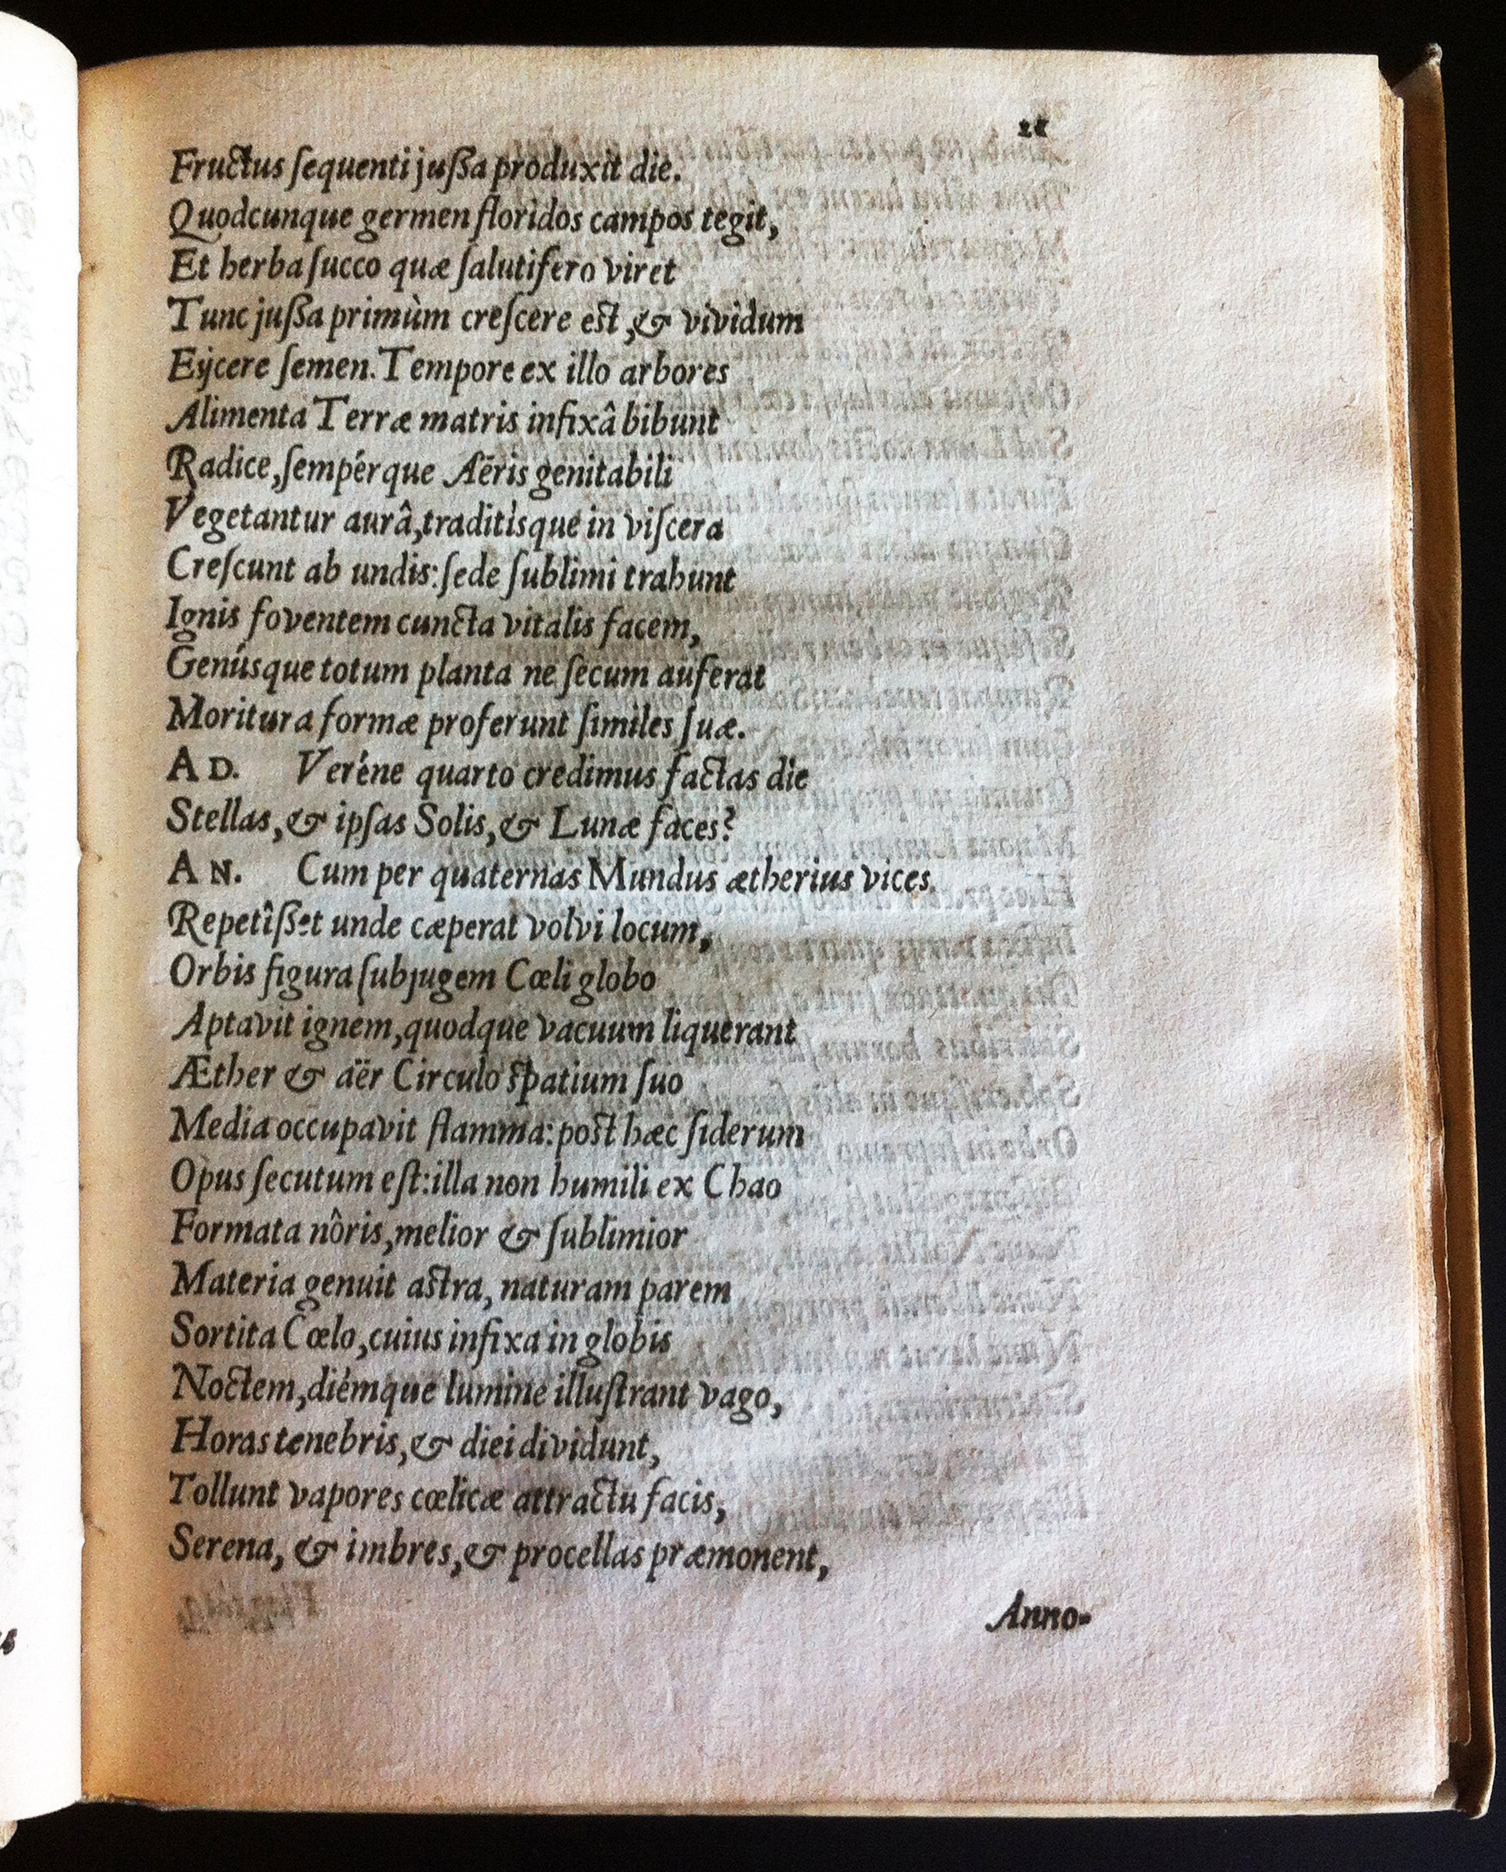 Fructus ſequenti juſſa produxit die.
Quodcunque germen floridos campos tegit,
Et herba ſucco quæ ſalutifero viret
Tunc juſſa primùm creſcere est, & vividum
Eijcere ſemen. Tempore ex illo arbores
Alimenta Terræ matris infixâ bibunt
Radice, ſempérque Aëris genitabili
Vegetantur aurâ, traditísque in viſcera
Creſcunt ab undis: ſede ſublimi trahunt
Ignis foventem cuncta vitalis facem,
Genúsque totum planta ne ſecum auferat
Moritura formæ proferunt ſimiles ſuæ.
AD. Veréne quarto credimus factas die
Stellas, & ipſas Solis, & Lunæ faces?
AN. Cum per quaternas Mundus ætherius vices
Repetîſſet unde cæperat volvi locum,
Orbis figura ſubjugem Cœli globo
Aptavit ignem, quodque vacuum liquerant
Æther & aër Circulo spatium ſuo
Media occupavit flamma: post hæc ſiderum
Opus ſecutum eſt: illa non humili ex Chao
Formata nôris, melior & ſublimior
Materia genuit astra, naturam parem
Sortita Cœlo, cuius infixa in globis
Noctem, diémque lumine illuſtrant vago,
Horas tenebris, & diei dividunt,
Tollunt vapores cœlicæ attractu facis,
Serena, & imbres, & procellas præmonent,
Anno-